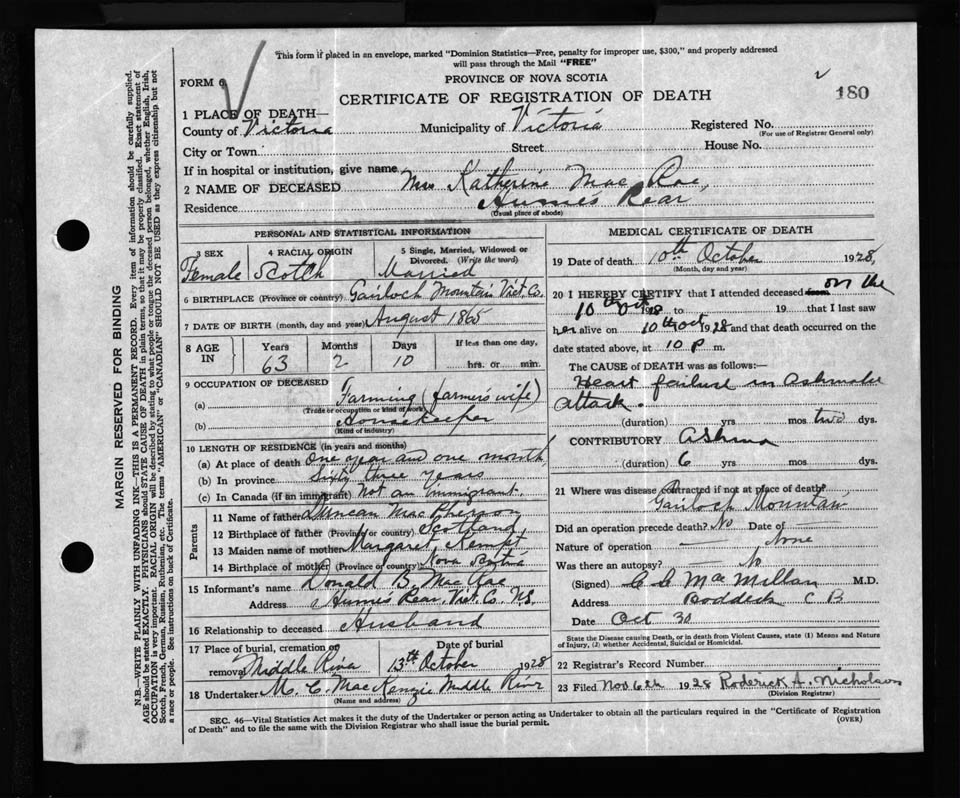 This form if placed in an envelope, marked "Dominion Statistics—Free, penalty for improper use, $300," and properly addressed
will pass through the Mail "FREE"
FORM 6
PROVINCE OF NOVA SCOTIA
CERTIFICATE OF REGISTRATION OF DEATH
180
1 PLACE OF DEATH—
County of Victoria Municipality of Victoria Registered No.
(For use of Registrar General only)
City or Town Street House No.
If in hospital or institution, give name
2 NAME OF DECEASED Mrs Katherine Mac Rae,
Residence Rear
(Usual place of abode)
PERSONAL AND STATISTICAL INFORMATION
3 SEX 4 RACIAL ORIGIN 5 Single, Married, Widowed or Divorced. (Write the word)
Female Scotch Married
6 BIRTHPLACE (Province or country) Gairloch Mountain Vict. Co.
7 DATE OF BIRTH (month, day and year) August 1865
8 AGE IN Years Months Days If less than one day,
63 2 10 hrs. or min.
9 OCCUPATION OF DECEASED
(a) Farming (farmer's wife)
(Trade or occupation or kind of work)
(b) Housekeeper
(Kind of industry)
10 LENGTH OF RESIDENCE (in years and months)
(a) At place of death One year and one month,
(b) In province Sixty three years
(c) In Canada (if an immigrant) Not an immigrant.
Parents
11 Name of father Duncan Mac Pherson
12 Birthplace of father (Province or country) Scotland,
13 Maiden name of mother Margaret
14 Birthplace of mother (Province or country) Nova Scotia
15 Informant's name Donald B. Mac Rae
Address Rear, Vict. Co. N.S.
16 Relationship to deceased Husband
17 Place of burial, cremation or removal Date of burial
Middle River 13th October 1928
18 Undertaker M. C. Mac Kenzie Middle River
(Name and address)
MEDICAL CERTIFICATE OF DEATH
19 Date of death 10th October 1928,
(Month, day and year)
20 I HEREBY CERTIFY that I attended deceased from on the
10th Oct 1928 to 19 that I last saw
her alive on 10th Oct 1928 and that death occurred on the
date stated above, at 10 p m.
The CAUSE OF DEATH was as follows:—
Heart failure in Asthmatic
attack.
(duration) yrs mos two dys.
CONTRIBUTORY Asthma
(duration) 6 yrs mos dys.
21 Where was disease contracted if not at place of death?
Gairloch Mountain
Did an operation precede death? No Date of
Nature of operation None
Was there an autopsy? No
(Signed) Mac Millan M.D.
Address Baddeck C B
Date Oct 30
State the Disease causing Death, or in death from Violent Causes, state (1) Means and Nature
of Injury, (2) whether Accidental, Suicidal or Homicidal.
22 Registrar's Record Number
23 Filed Nov 6th 1928 Roderick A. Nicholson
(Division Registrar)
SEC. 46—Vital Statistics Act makes it the duty of the Undertaker or person acting as Undertaker to obtain all the particulars required in the "Certificate of Registration
of Death" and to file the same with the Division Registrar who shall issue the burial permit.
(OVER)
MARGIN RESERVED FOR BINDING
N.B.—WRITE PLAINLY WITH UNFADING INK—THIS IS A PERMANENT RECORD. Every item of information should be carefully supplied.
AGE should be stated EXACTLY. PHYSICIANS should STATE CAUSE OF DEATH in plain terms, so that it may be properly classified. Exact statement of
OCCUPATION is very important. RACIAL ORIGIN will be described by stating to what people or tongue the deceased person belonged, whether English, Irish,
Scotch, French, German, Russian, Ruthenian, etc. The terms "AMERICAN" or "CANADIAN" SHOULD NOT BE USED as they express citizenship but not
a race or people. See instructions on back of Certificate.